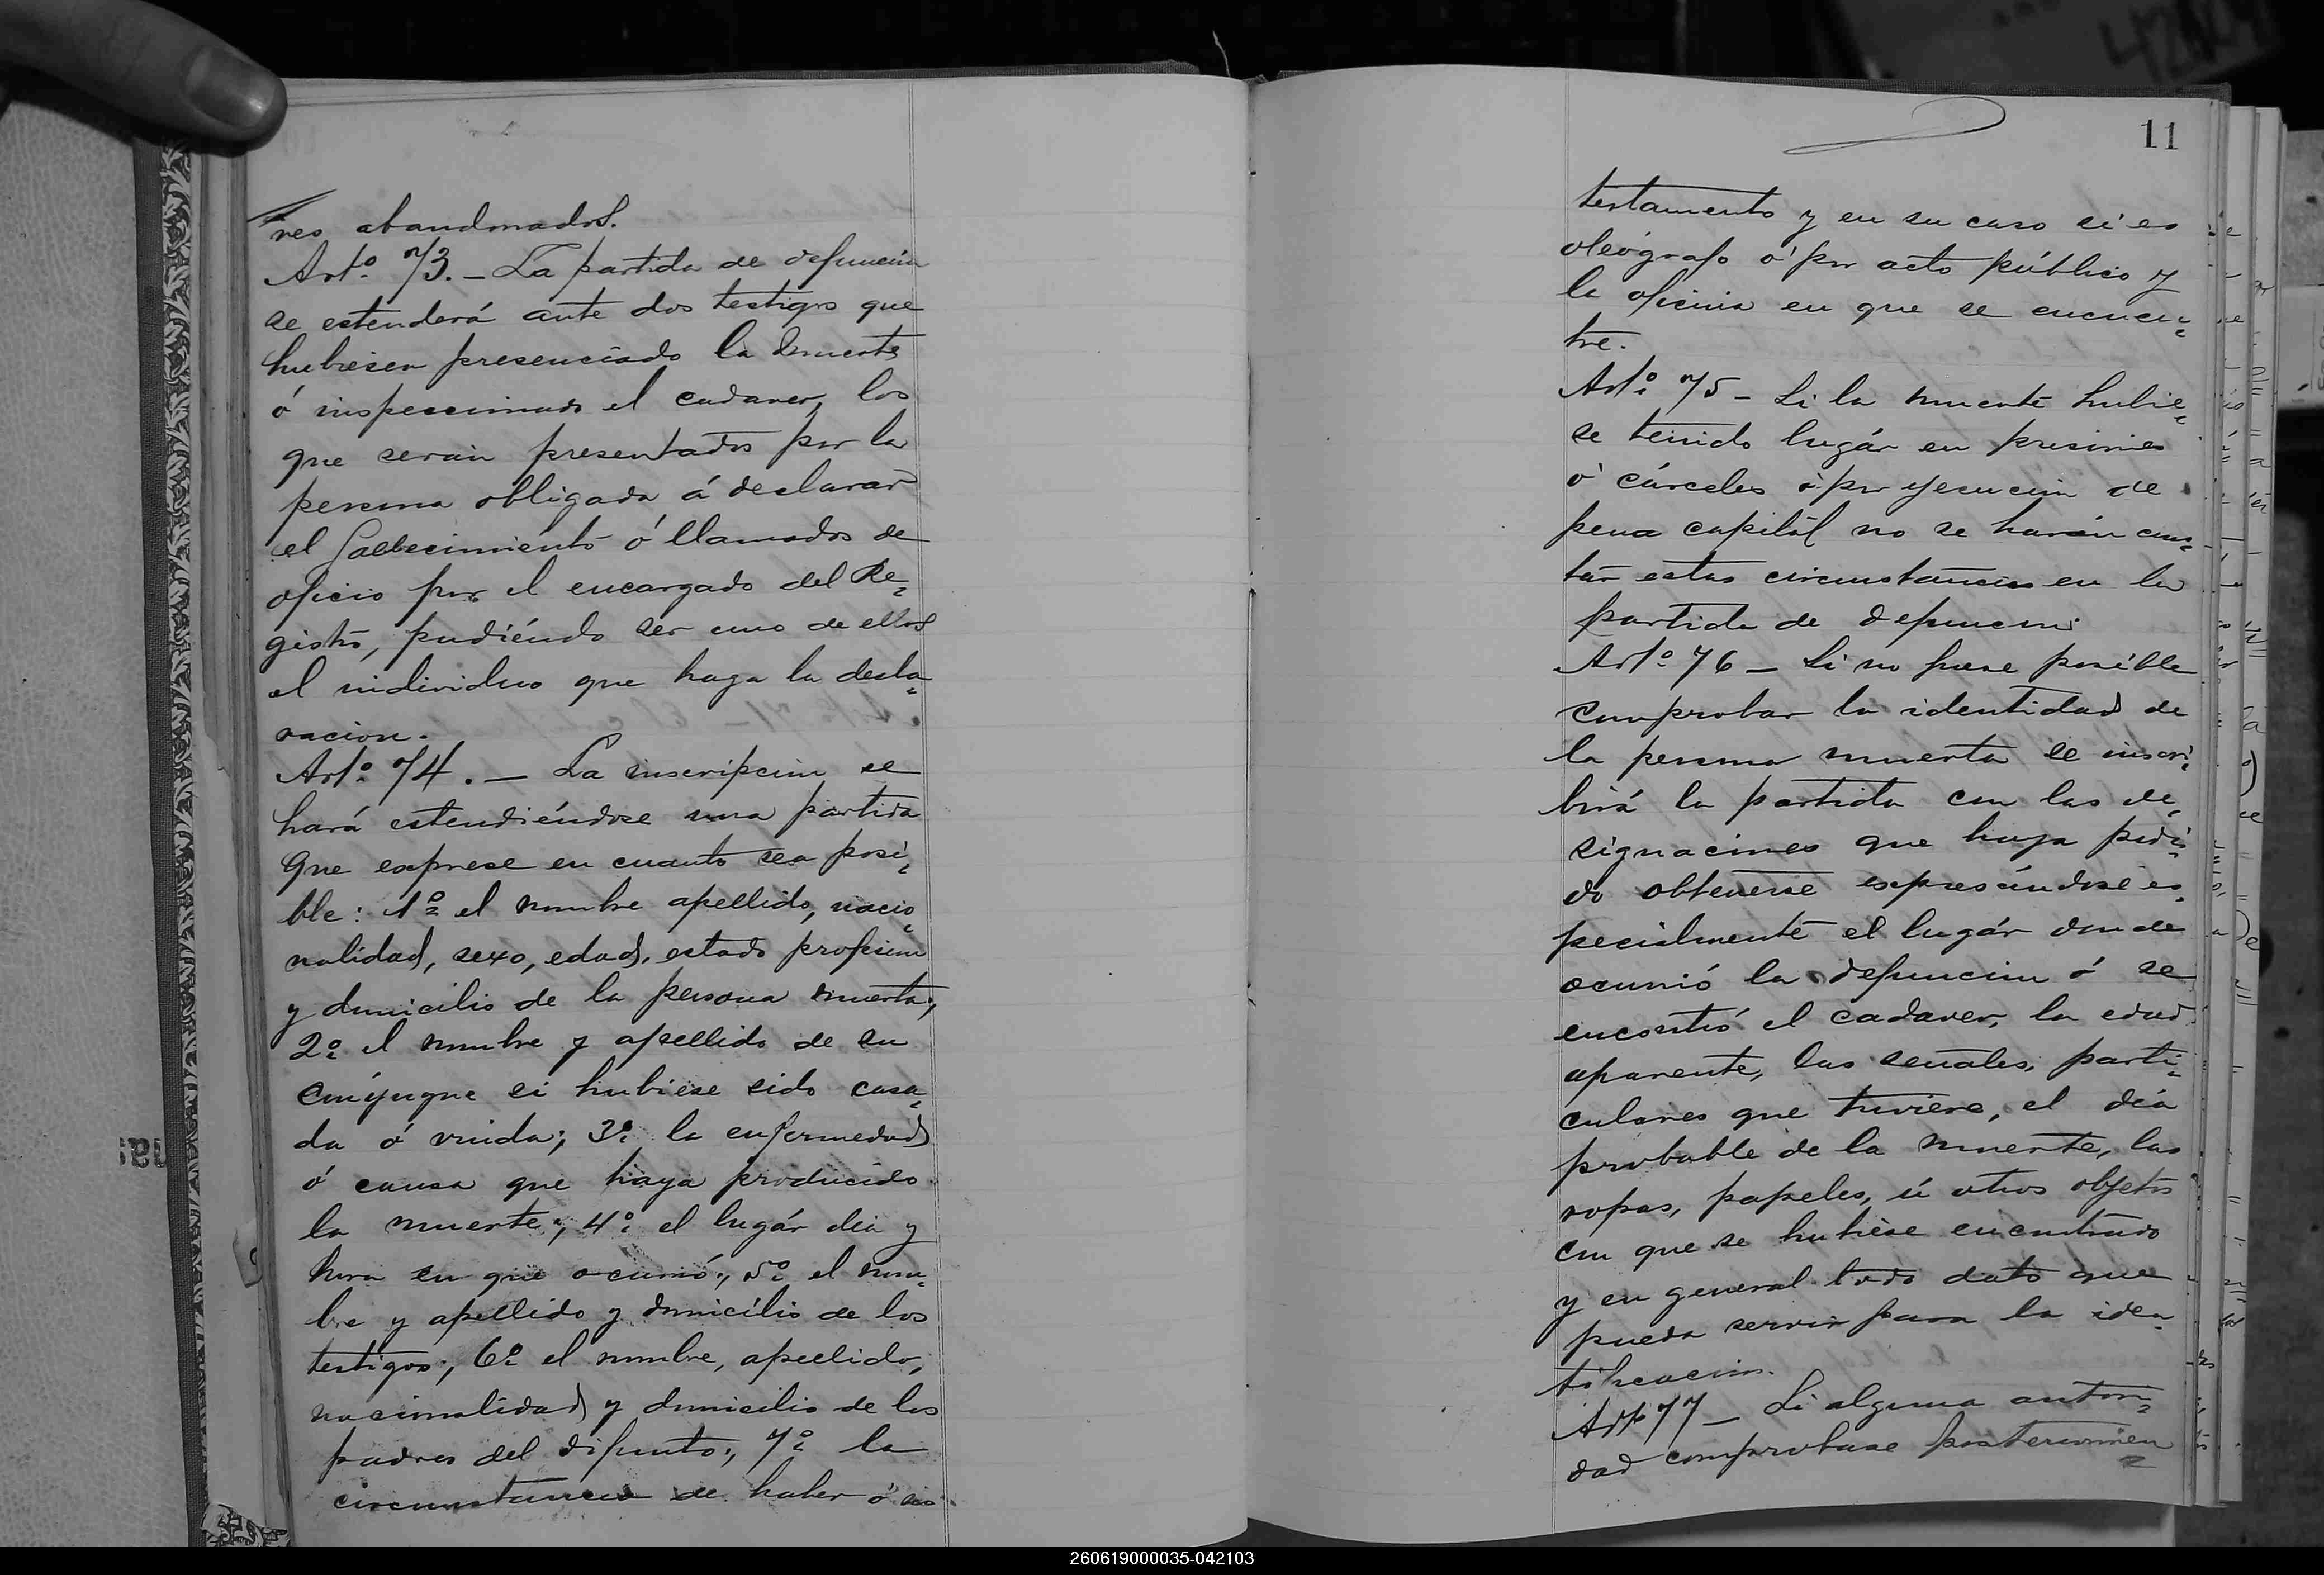 res abandonados.
Artº 73. — La partida de defunción
se estenderá ante dos testigos que
hubiesen presenciado la muerte
ó inspeccionado el cadaver, los
que serán presentados por la
persona obligada á declarar
el fallecimiento ó llamados de
oficio por el encargado del Re=
gistro, pudiéndo ser uno de ellos
el individuo que haga la decla=
racion.
Artº 74. — La inscripcion se
hará estendiéndose una partida
que esprese en cuanto sea posi=
ble: 1º el nombre apellido, nacio=
nalidad, sexo, edad, estado profesion
y domicilio de la persona muerta;
2º el nombre y apellido de su
cónyugue si hubiese sido casa=
da ó viuda; 3º la enfermedad
ó causa que haya producido
la muerte; 4º el lugár dia y
hora en que ocurrió; 5º el nom=
bre y apellido y domicilio de los
testigos; 6º el nombre, apellido,
nacionalidad y domicilio de los
padres del difunto; 7º la
circunstancia de haber ó no
11
testamento y en su caso si es
oleógrafo ó por acto público y
la oficina en que se encuen=
tre.
Artº 75 — Si la muerte hubie=
se tenido lugár en prisiones
ó cárceles ó por ejecucion de
pena capitál no se harán cons=
tar estas circunstancias en la
partida de defuncion.
Artº 76 — Si no fuese posible
comprobar la identidad de
la persona muerta se inscri=
birá la partida con las de=
signaciones que haya podi=
do obtenerse espresándose es=
pecialmente el lugár donde
ocurrió la defuncion ó se
encontró el cadaver, la edad
aparente, las señales, parti=
culares que tuviere, el día
probable de la muerte, las
ropas, papeles, ú otros objetos
con que se hubiese encontrado
y en general todo dato que
pueda servir para la iden
tificacion.
Artº 77 — Si alguna autori=
dad comprobase posteriormen
260619000035-042103